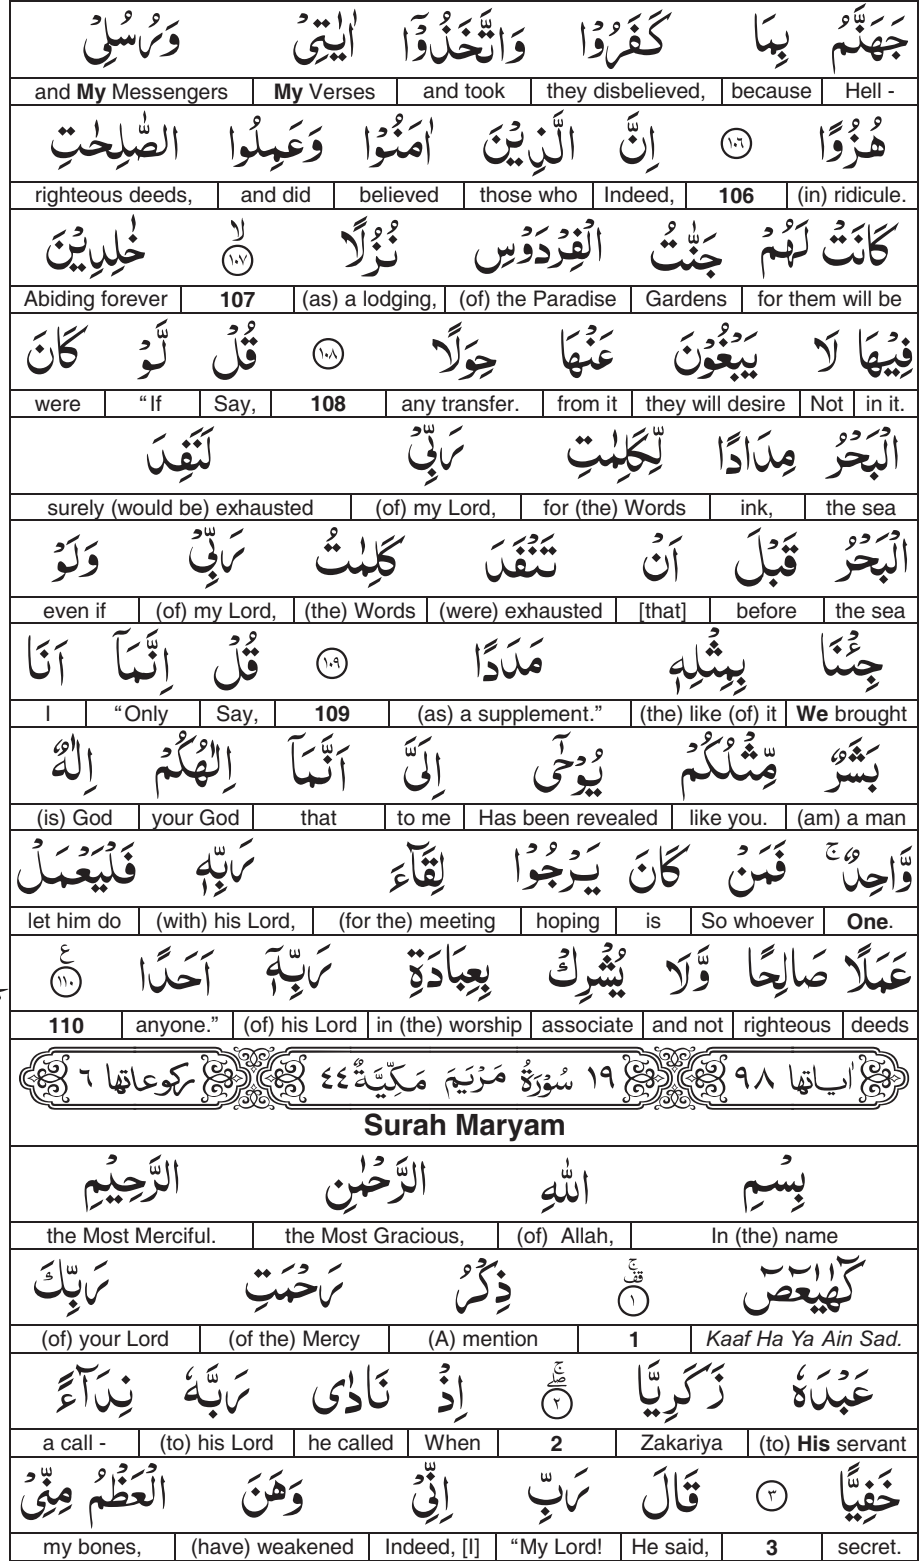 جَهَنَّمُ بِمَا كَفَرُوْا وَاتَّخَذُوْٓا اٰيٰتِيْ وَرُسُلِيْ
Hell - because they disbelieved, and took My Verses and My Messengers
هُزُوًا ۱۰٦ اِنَّ الَّذِيْنَ اٰمَنُوْا وَعَمِلُوا الصّٰلِحٰتِ
(in) ridicule. 106 Indeed, those who believed and did righteous deeds,
كَانَتْ لَهُمْ جَنّٰتُ الْفِرْدَوْسِ نُزُلًا ۙ ۱۰۷ خٰلِدِيْنَ
for them will be Gardens (of) the Paradise (as) a lodging, 107 Abiding forever
فِيْهَا لَا يَبْغُوْنَ عَنْهَا حِوَلًا ۱۰۸ قُلْ لَّوْ كَانَ
in it. Not they will desire from it any transfer. 108 Say, “If were
الْبَحْرُ مِدَادًا لِّكَلِمٰتِ رَبِّيْ لَنَفِدَ
the sea ink, for (the) Words (of) my Lord, surely (would be) exhausted
الْبَحْرُ قَبْلَ اَنْ تَنْفَدَ كَلِمٰتُ رَبِّيْ وَلَوْ
the sea before [that] (were) exhausted (the) Words (of) my Lord, even if
جِئْنَا بِمِثْلِهٖ مَدَدًا ۱۰۹ قُلْ اِنَّمَآ اَنَا
We brought (the) like (of) it (as) a supplement.” 109 Say, “Only I
بَشَرٌ مِّثْلُكُمْ يُوْحٰٓى اِلَيَّ اَنَّمَآ اِلٰهُكُمْ اِلٰهٌ
(am) a man like you. Has been revealed to me that your God (is) God
وَّاحِدٌ ۚ فَمَنْ كَانَ يَرْجُوْا لِقَآءَ رَبِّهٖ فَلْيَعْمَلْ
One. So whoever is hoping (for the) meeting (with) his Lord, let him do
عَمَلًا صَالِحًا وَّلَا يُشْرِكْ بِعِبَادَةِ رَبِّهٖٓ اَحَدًا ۱۱۰ ع
deeds righteous and not associate in (the) worship (of) his Lord anyone.” 110
اٰياتها ۹۸ ۱۹ سُوْرَةُ مَرْيَمَ مَكِّيَّةٌ ٤٤ ركوعاتها ٦
Surah Maryam
بِسْمِ اللّٰهِ الرَّحْمٰنِ الرَّحِيْمِ
In (the) name (of) Allah, the Most Gracious, the Most Merciful.
كٓهٰيٰعٓصٓ ۚ قف ۱ ذِكْرُ رَحْمَتِ رَبِّكَ
Kaaf Ha Ya Ain Sad. 1 (A) mention (of the) Mercy (of) your Lord
عَبْدَهٗ زَكَرِيَّا ۖ ۚ ۲ اِذْ نَادٰى رَبَّهٗ نِدَآءً
(to) His servant Zakariya 2 When he called (to) his Lord a call -
خَفِيًّا ۳ قَالَ رَبِّ اِنِّيْ وَهَنَ الْعَظْمُ مِنِّيْ
secret. 3 He said, “My Lord! Indeed, [I] (have) weakened my bones,